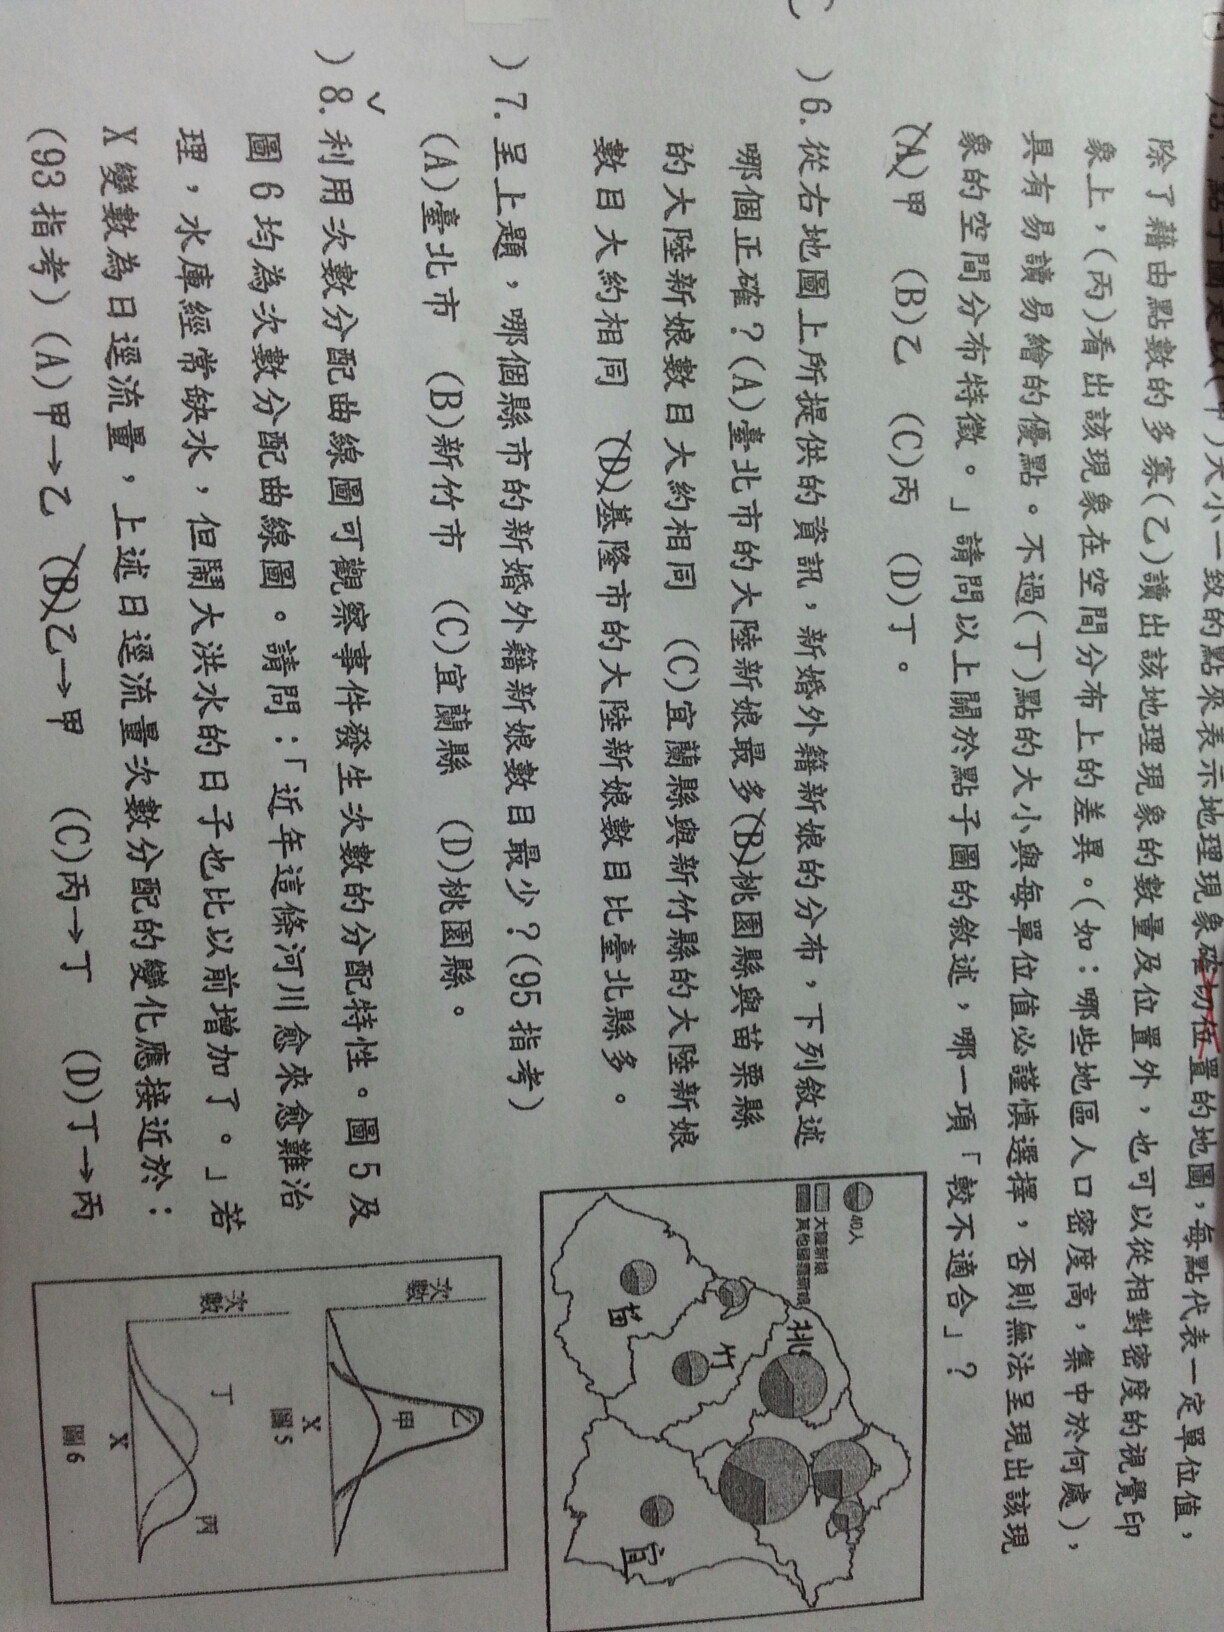 大小一致的點來表示地理現象確切位置的地圖，每點代表一定單位值，
除了藉由點數的多寡(乙)讀出該地理現象的數量及位置外，也可以從相對密度的視覺印
象上，(丙)看出該現象在空間分布上的差異。(如：哪些地區人口密度高，集中於何處)，
具有易讀易繪的優點。不過(丁)點的大小與每單位值必謹慎選擇，否則無法呈現出該現
象的空間分布特徵。」請問以上關於點子圖的敘述，哪一項「較不適合」？
(A)甲 (B)乙 (C)丙 (D)丁。
)6.從右地圖上所提供的資訊，新婚外籍新娘的分布，下列敘述
哪個正確？(A)臺北市的大陸新娘最多(B)桃園縣與苗栗縣
的大陸新娘數目大約相同 (C)宜蘭縣與新竹縣的大陸新娘
數目大約相同 (D)基隆市的大陸新娘數目比臺北縣多。
)7.呈上題，哪個縣市的新婚外籍新娘數目最少？(95指考)
(A)臺北市 (B)新竹市 (C)宜蘭縣 (D)桃園縣。
40人
大陸新娘
其他國籍新娘
桃
竹
苗
宜
)8.利用次數分配曲線圖可觀察事件發生次數的分配特性。圖5及
圖6均為次數分配曲線圖。請問：「近年這條河川愈來愈難治
理，水庫經常缺水，但鬧大洪水的日子也比以前增加了。」若
X變數為日逕流量，上述日逕流量次數分配的變化應接近於：
(93指考)(A)甲→乙 (B)乙→甲 (C)丙→丁 (D)丁→丙
次數
乙
甲
X
圖5
次數
丁
丙
X
圖6